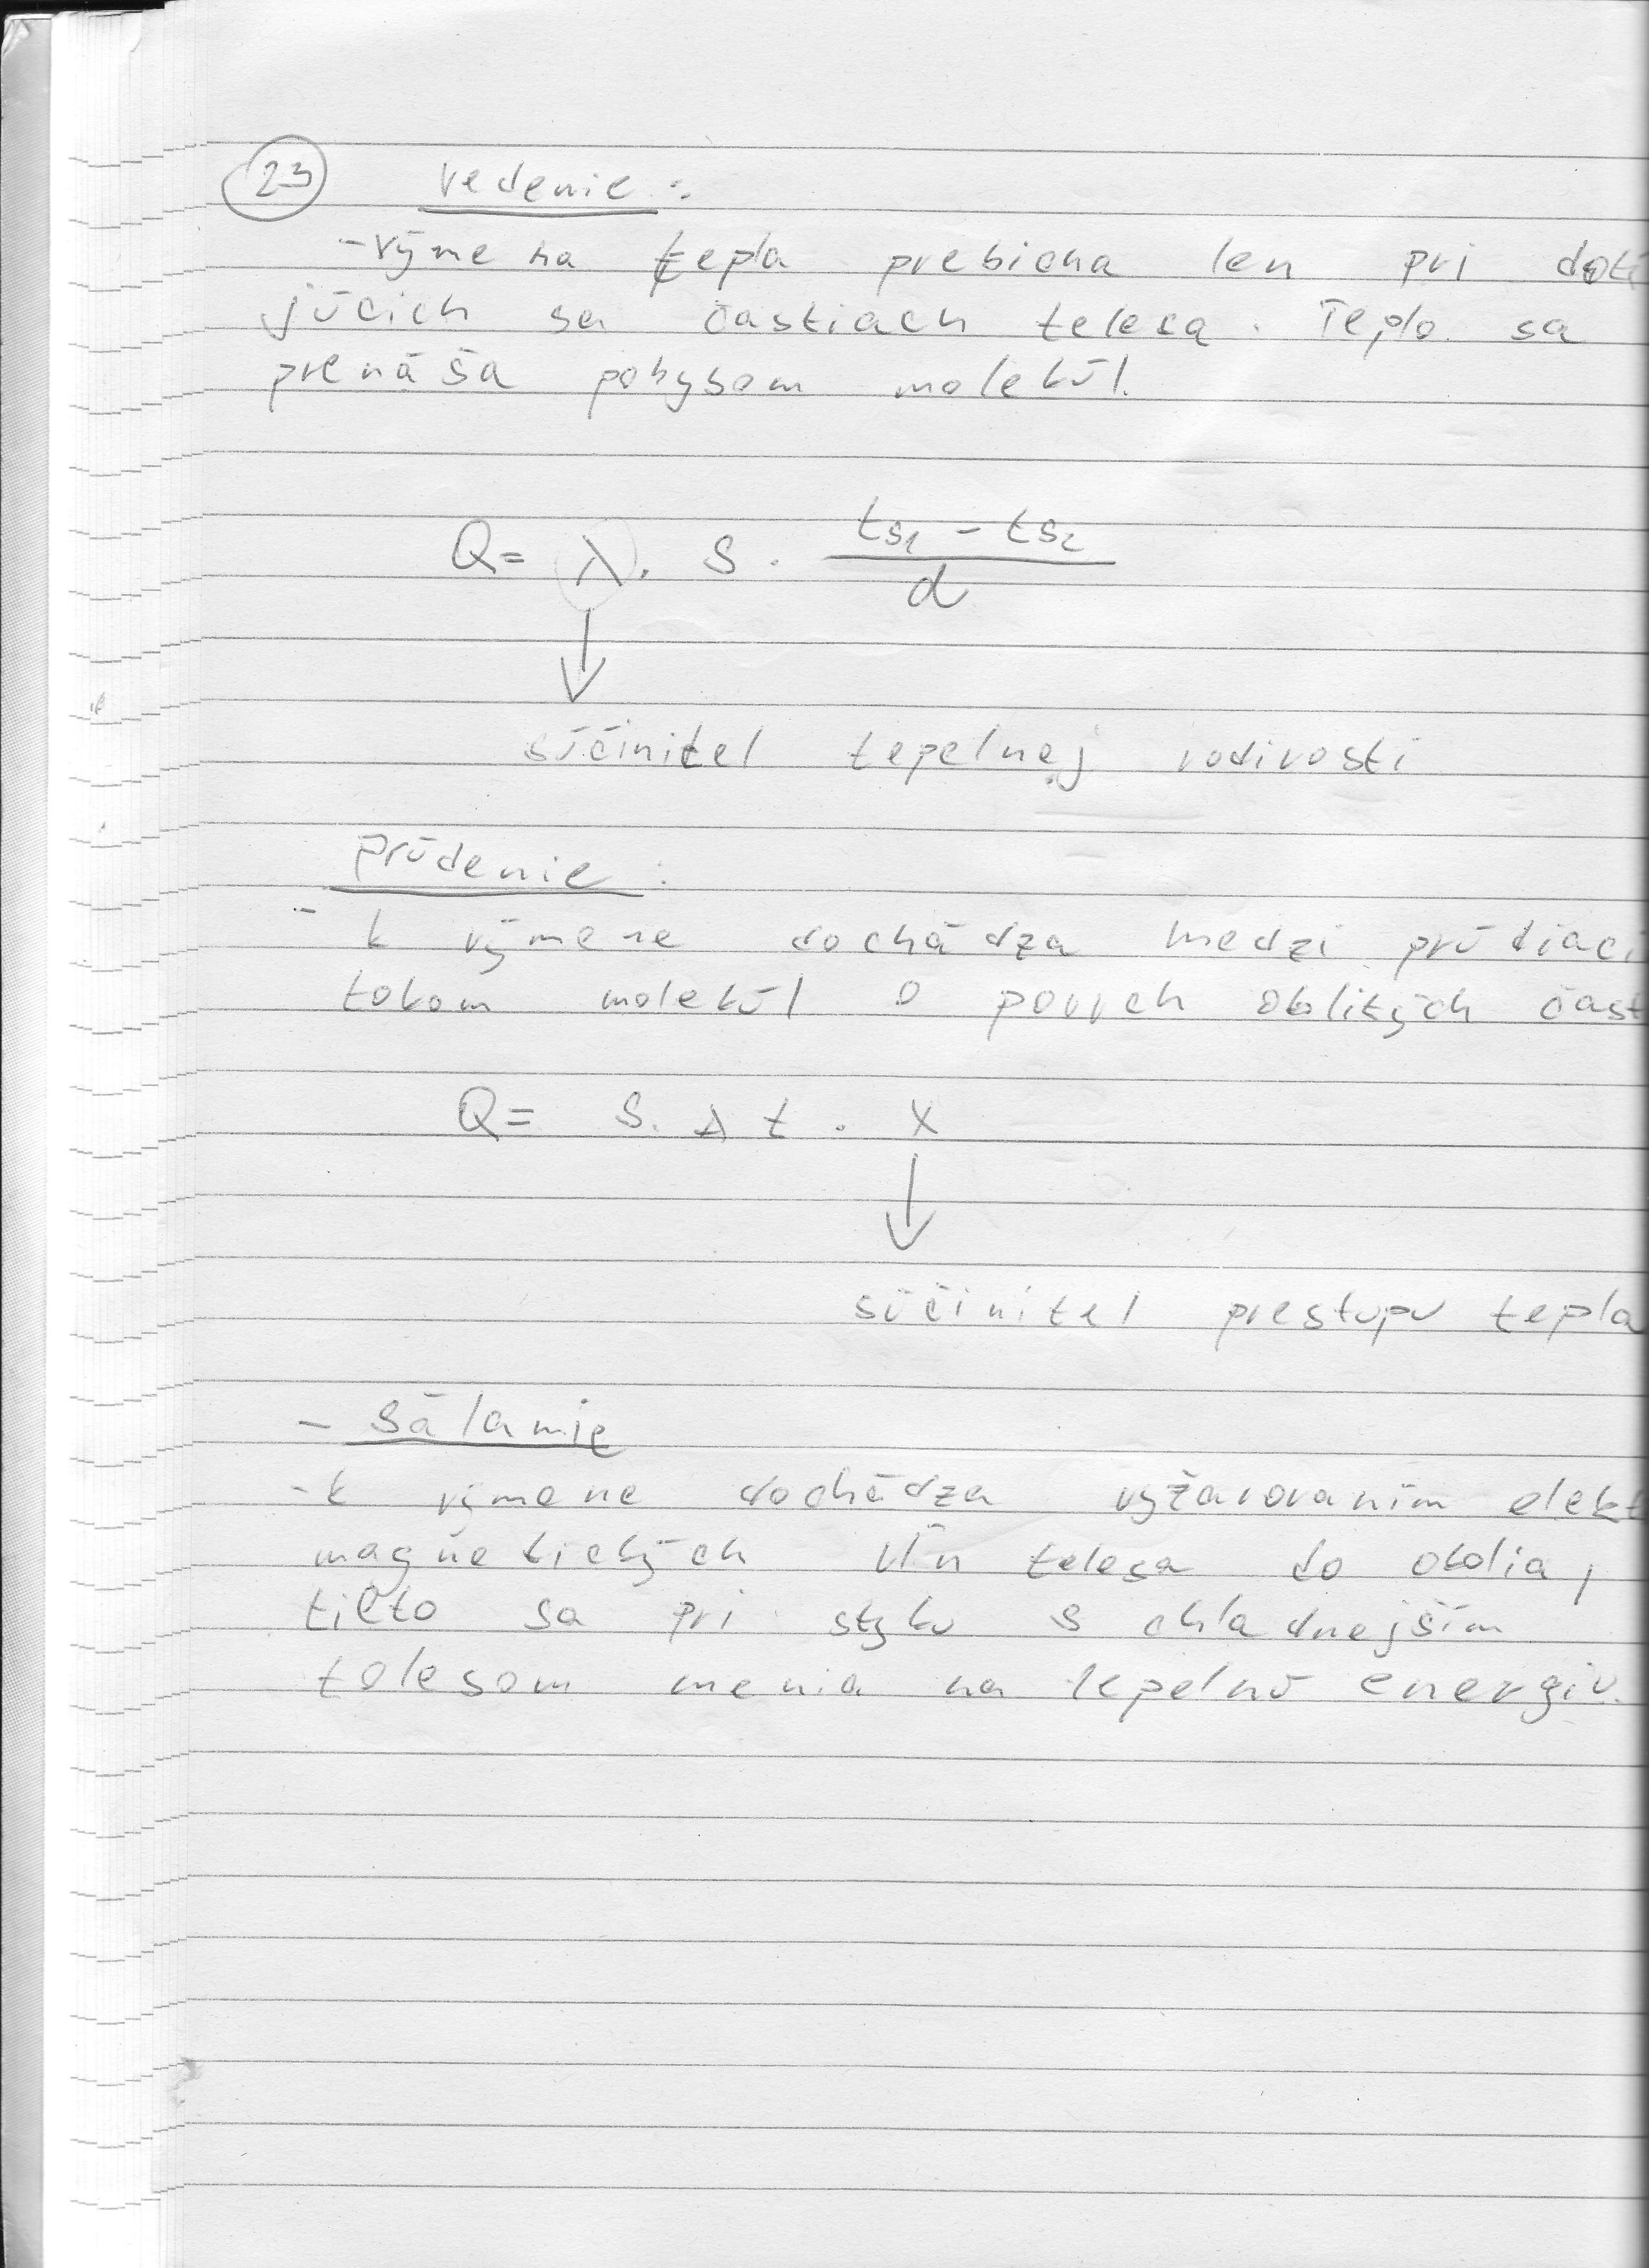 23 vedenie:
- výmena tepla prebieha len pri doti
júcich sa častiach telesa. Teplo sa
prenáša pohybom molekúl.
Q = λ . S . (ts1 - ts2) / d
súčinitel tepelnej vodivosti
Prúdenie:
- k výmene dochádza medzi prúdiaci
tokom molekúl o povrch oblitých čast
Q = S. Δ t . X
súčinitel prestupu tepla
- Sálanie
- k výmene dochádza vyžarovaním elekt
magnetických vĺn telesa do okolia,
tieto sa pri styku s chladnejším
telesom menia na tepelnú energiu.